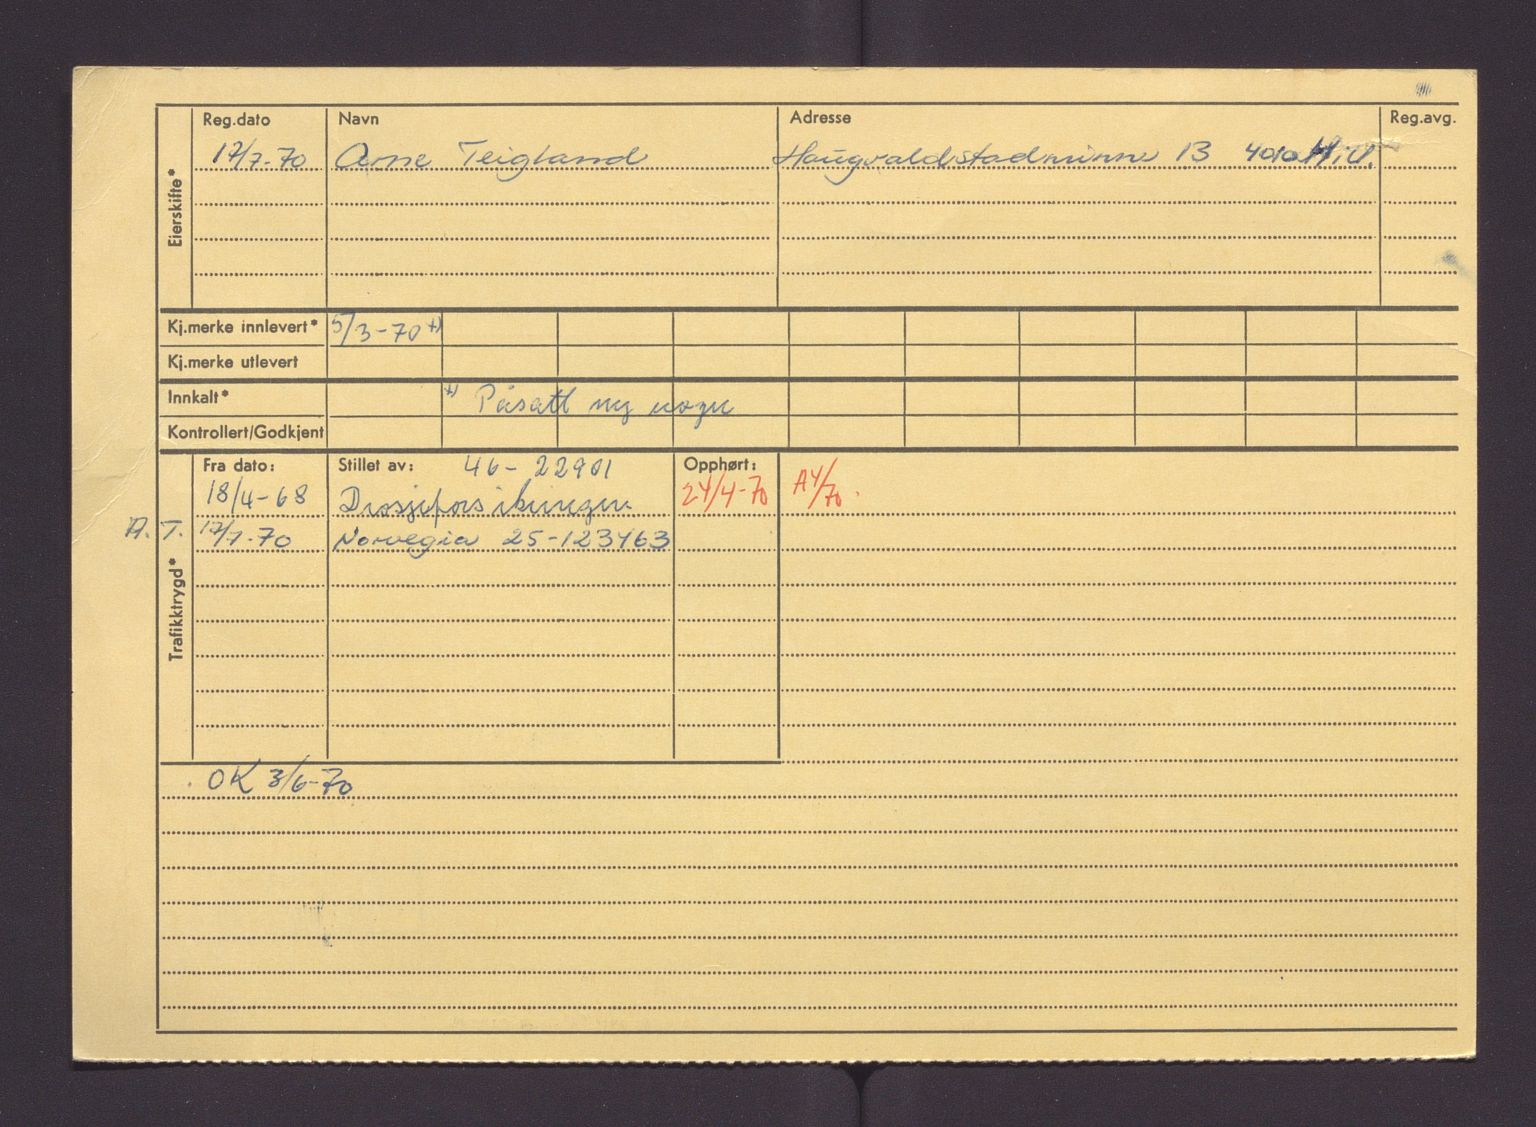 Reg.dato Navn Adresse Reg.avg.
Eierskifte*
17/7-70 Arne Teigland Haugvaldstadminne 13 4010
Kj.merke innlevert* 5/3-70 +)
Kj.merke utlevert
Innkalt* +) Påsatt ny vogn
Kontrollert/Godkjent
Trafikktrygd*
Fra dato: Stillet av: 46-22901 Opphørt:
18/4-68 Drosjeforsikringen 24/4-70 A4/70.
A.T. 17/7-70 Norvegia 25-123463
OK 3/6-70